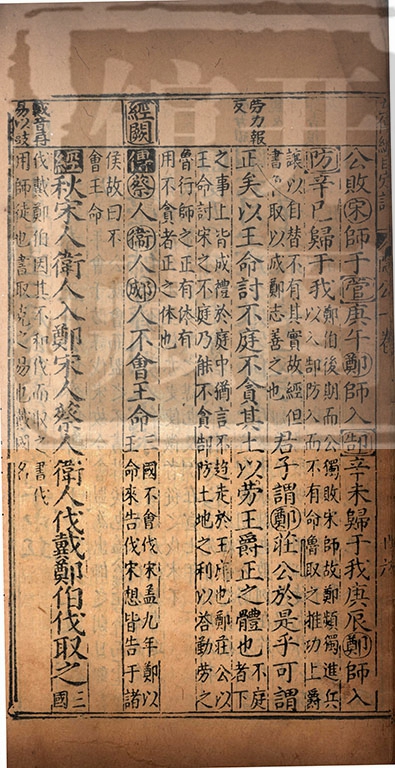 公敗宋師于菅庚午鄭師入郜辛未歸于我庚辰鄭師入
防辛巳歸于我
鄭伯後期而公獨敗宋師故鄭頻獨進兵
以入郜防入而不有命魯取之推功上爵
讓以自替不有其實故經但
書魯取以成鄭志善之也
君子謂鄭莊公於是乎可謂
勞力報
反
正矣以王命討不庭不貪其土以勞王爵正之體也
不庭
者下
之事上皆成禮於庭中猶言不趨走於王庭也鄭莊公以
王命討宋之不庭乃能不貪郜防土地之利以答勤勞之
魯行師之正有体有
用不貪者正之体也
經闕
傳蔡人衛人郕人不會王命
三國不會伐宋盖九年鄭以
王命來告伐宋想皆告于諸
侯故曰不
會王命
經秋宋人衛人入鄭宋人蔡人衛人伐戴鄭伯伐取之
三
國
戴音再
易以豉
伐戴鄭伯因其不和伐而取之書伐
用師徒也書取克之易也戴國名